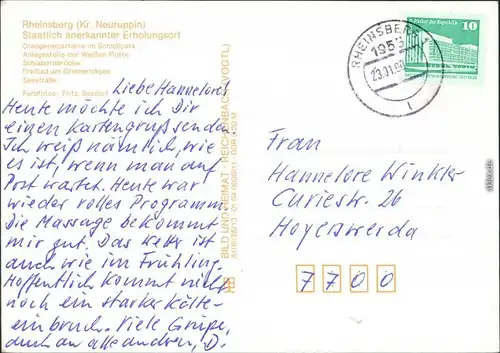 Rheinsberg (Kr. Neuruppin)
Staatlich anerkannter Erholungsort
Orangerieparterre im Schloßpark
Anlegestelle der Weißen Flotte
Schlabornbrücke
Freibad am Grienericksee
Seestraße
Farbfotos: Fritz,
Liebe Hannelore!
Heute möchte ich Dir
einen Kartengruß senden
Ich weiß nämlich, wie
es ist, wenn man auf
Post wartet. Heute war
wieder volles Programm.
Die Massage bekommt
mir gut. Das Wetter ist
auch wie im Frühling.
Hoffentlich kommt nicht
noch ein starker Kälte-
einbruch. Viele Grüße,
auch an alle andren, D.
BILD UND HEIMAT · REICHENBACH (VOGTL)
RHEINSBERG 1
1955
23.01.90
10
Frau
Hannelore Winkler
Curiestr. 26
Hoyerswerda
7700